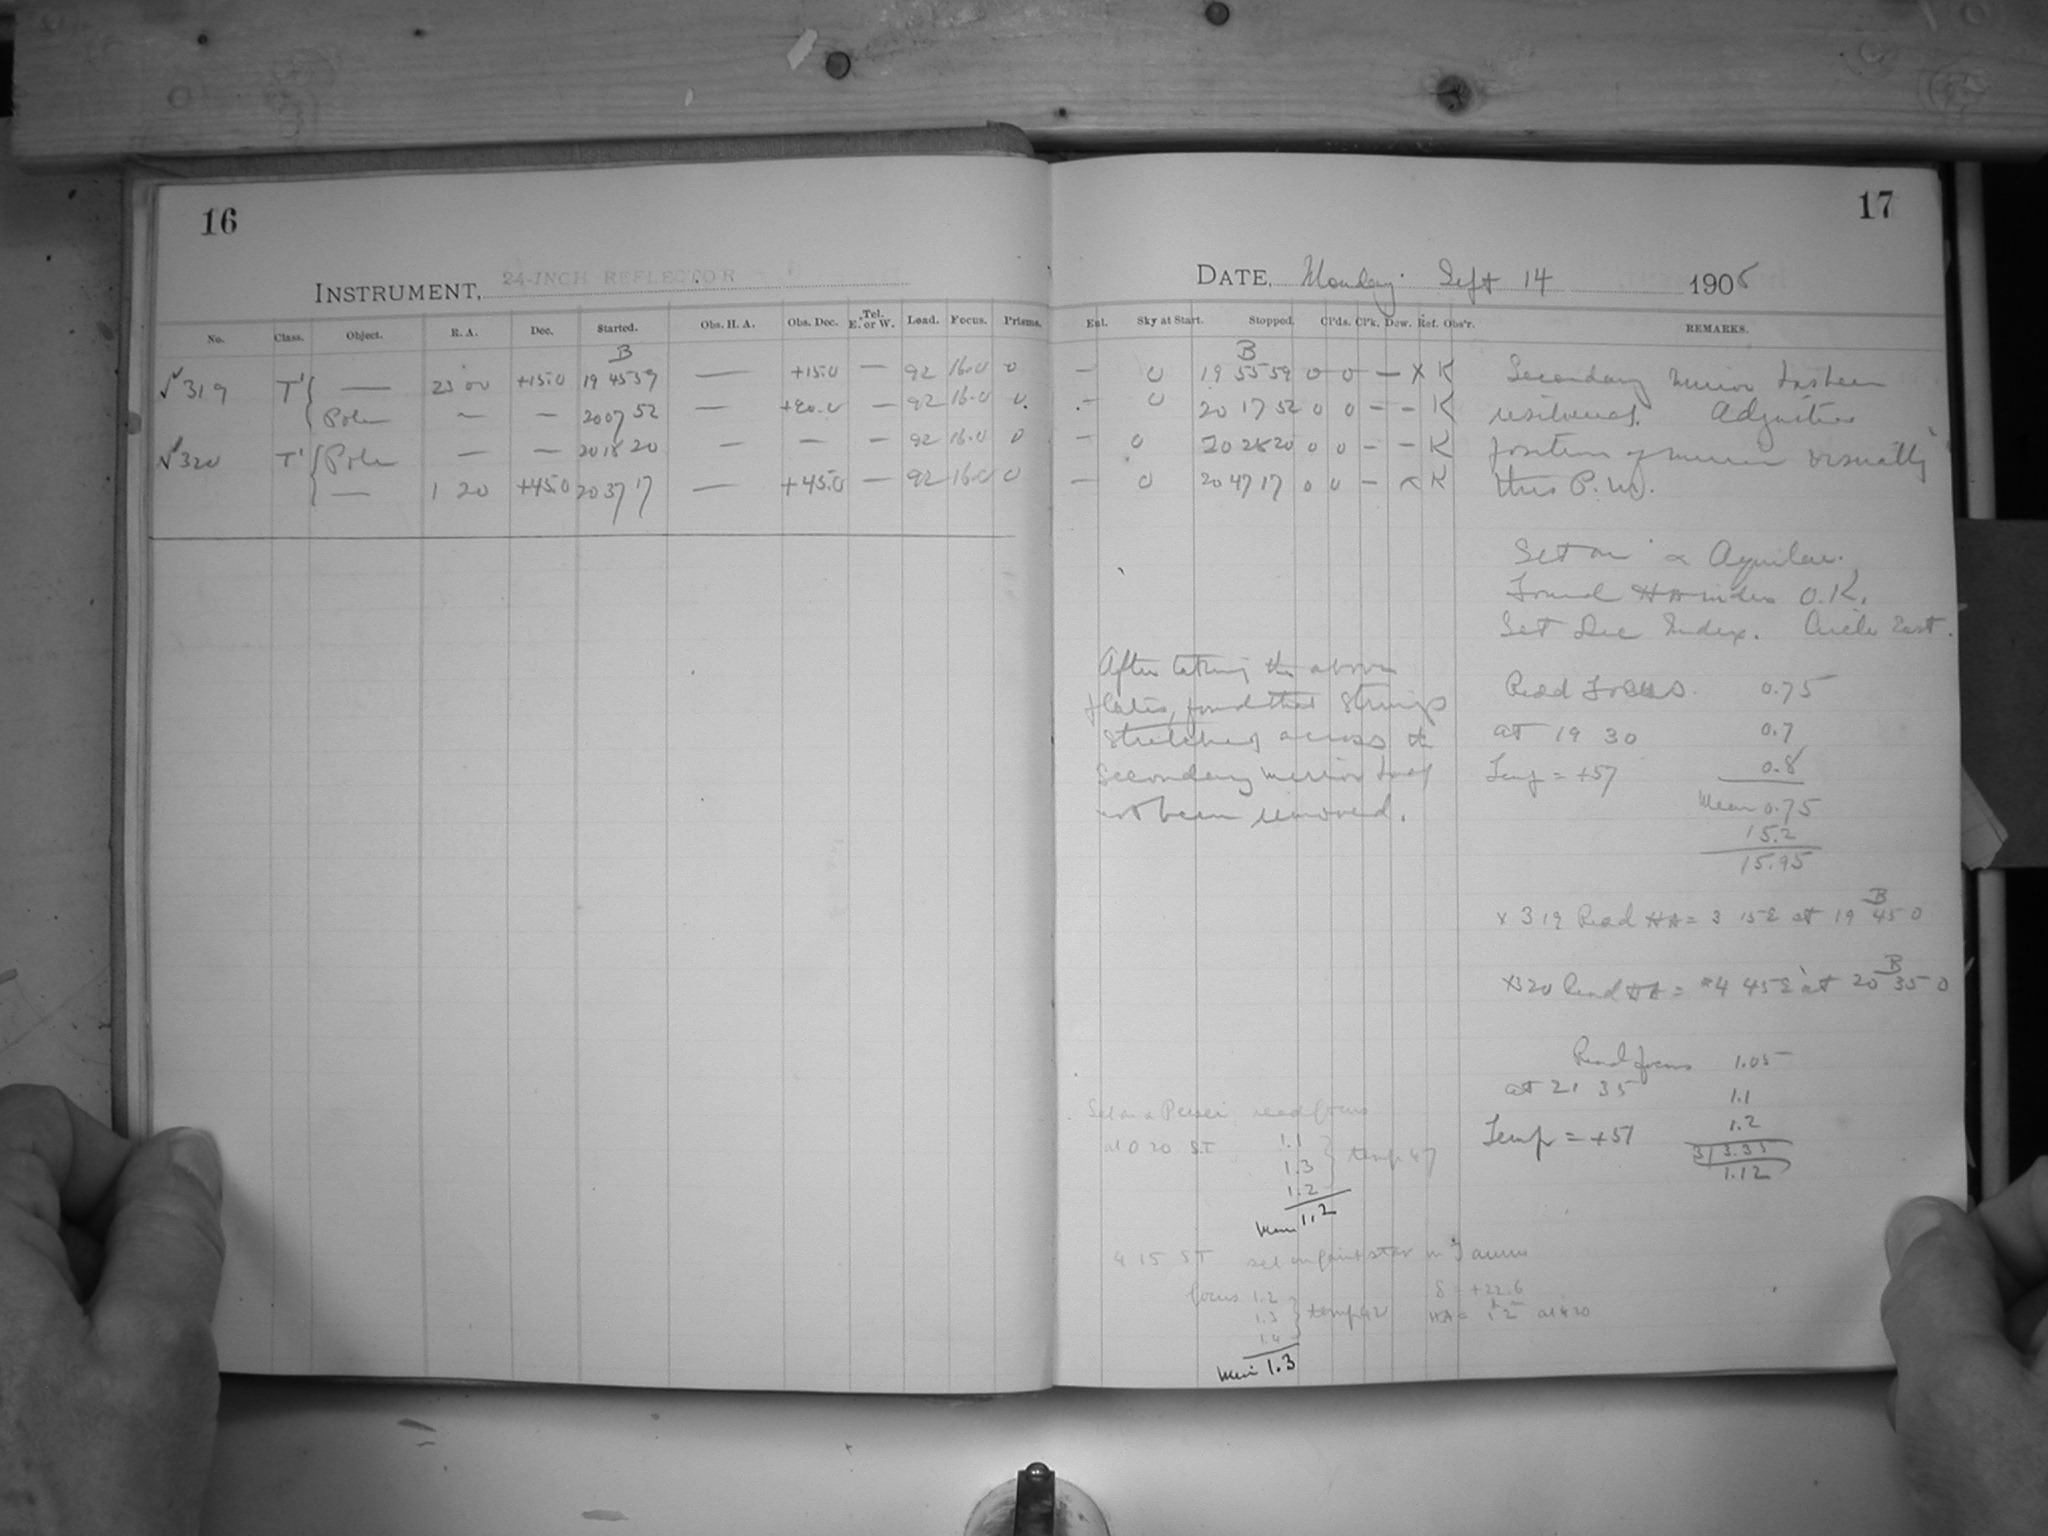 16
INSTRUMENT, 24-INCH REFLECTOR
No. Class. Object. R. A. Dec. Started. Obs. H. A. Obs. Dec. Tel. E. or W. Load. Focus. Prisms.
B
√319 T' { — 23 00 +15.0 19 45 59 — +15.0 — 92 16.0 0
Pole — — 20 07 52 — +90.0 — 92 16.0 0
√320 T' { Pole — — 20 18 20 — — — 92 16.0 0
— 1 20 +45.0 20 37 17 — +45.0 — 92 16.0 0
17
DATE, Monday Sept 14 1908
Enl. Sky at Start. Stopped. Cl'ds. Cl'k. Dew. Ref. Obs'r. REMARKS.
B
— 0 19 55 59 0 0 — x K Secondary mirror has been
— 0 20 17 52 0 0 — — K resilvered. Adjusted
— 0 20 28 20 0 0 — — K position of mirror visually
— 0 20 47 17 0 0 — x K this P.M.
Set on α Aquilae.
Found HA index O.K.
Set Dec Index. Circle East.
After taking the above
plates, found that strings
stretched across the
secondary mirror had
not been removed.
Read Focus. 0.75
at 19 30 0.7
Temp = +57 0.8
Mean 0.75
15.2
15.95
x 319 Read HA = 3 15 E at 19 45 0
B
x 320 Read HA = 4 45 E at 20 35 0
B
Read focus 1.05
at 21 35 1.1
Temp = +51 1.2
3 | 3.35
1.12
Set on α Persei, read focus
at 0 20 S.T. 1.1
1.3 } temp 47
1.2
Mean 1.2
4 15 ST set on faint star in Taurus
focus 1.2 δ = +22.6
1.3 } temp 42 HA = at 4 20
1.4
Mean 1.3